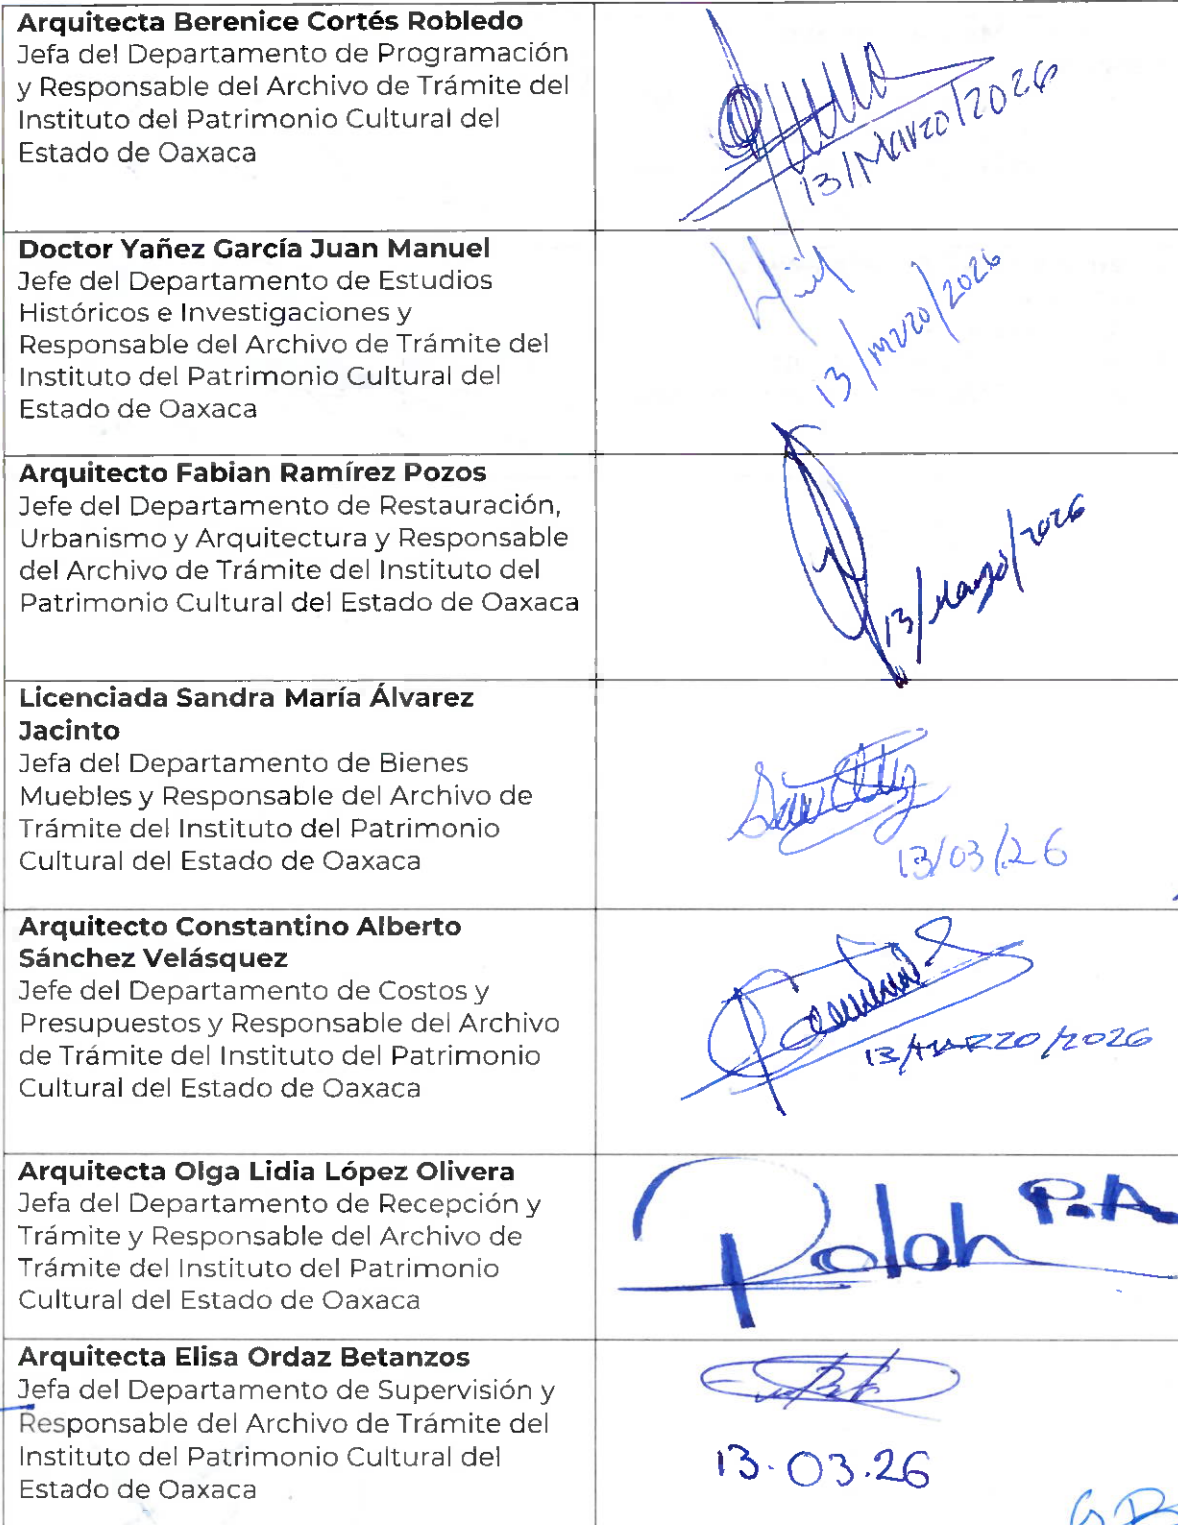 Arquitecta Berenice Cortés Robledo
Jefa del Departamento de Programación
y Responsable del Archivo de Trámite del
Instituto del Patrimonio Cultural del
Estado de Oaxaca
13/Marzo/2026
Doctor Yañez García Juan Manuel
Jefe del Departamento de Estudios
Históricos e Investigaciones y
Responsable del Archivo de Trámite del
Instituto del Patrimonio Cultural del
Estado de Oaxaca
13/marzo/2026
Arquitecto Fabian Ramírez Pozos
Jefe del Departamento de Restauración,
Urbanismo y Arquitectura y Responsable
del Archivo de Trámite del Instituto del
Patrimonio Cultural del Estado de Oaxaca
13/Marzo/2026
Licenciada Sandra María Álvarez
Jacinto
Jefa del Departamento de Bienes
Muebles y Responsable del Archivo de
Trámite del Instituto del Patrimonio
Cultural del Estado de Oaxaca
13/03/26
Arquitecto Constantino Alberto
Sánchez Velásquez
Jefe del Departamento de Costos y
Presupuestos y Responsable del Archivo
de Trámite del Instituto del Patrimonio
Cultural del Estado de Oaxaca
13/MARZO/2026
Arquitecta Olga Lidia López Olivera
Jefa del Departamento de Recepción y
Trámite y Responsable del Archivo de
Trámite del Instituto del Patrimonio
Cultural del Estado de Oaxaca
P.A.
Arquitecta Elisa Ordaz Betanzos
Jefa del Departamento de Supervisión y
Responsable del Archivo de Trámite del
Instituto del Patrimonio Cultural del
Estado de Oaxaca
13.03.26